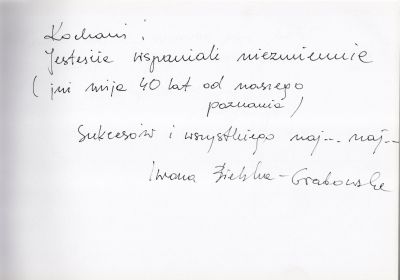 Kochani!
Jesteście wspaniali niezmiennie
(już mija 40 lat od naszego
poznania)
Sukcesów i wszystkiego naj... naj...
Iwona Bielska-Grabowska